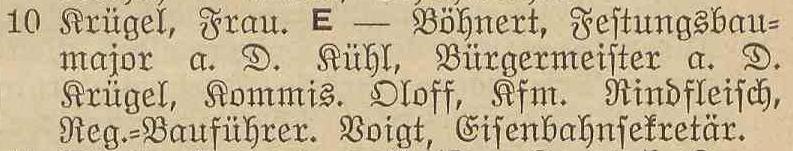 10 Krügel, Frau. E — Böhnert, Feſtungsbau=
major a. D. Kühl, Bürgermeiſter a. D.
Krügel, Kommis. Oloff, Kfm. Rindfleiſch,
Reg.=Bauführer. Voigt, Eiſenbahnſekretär.